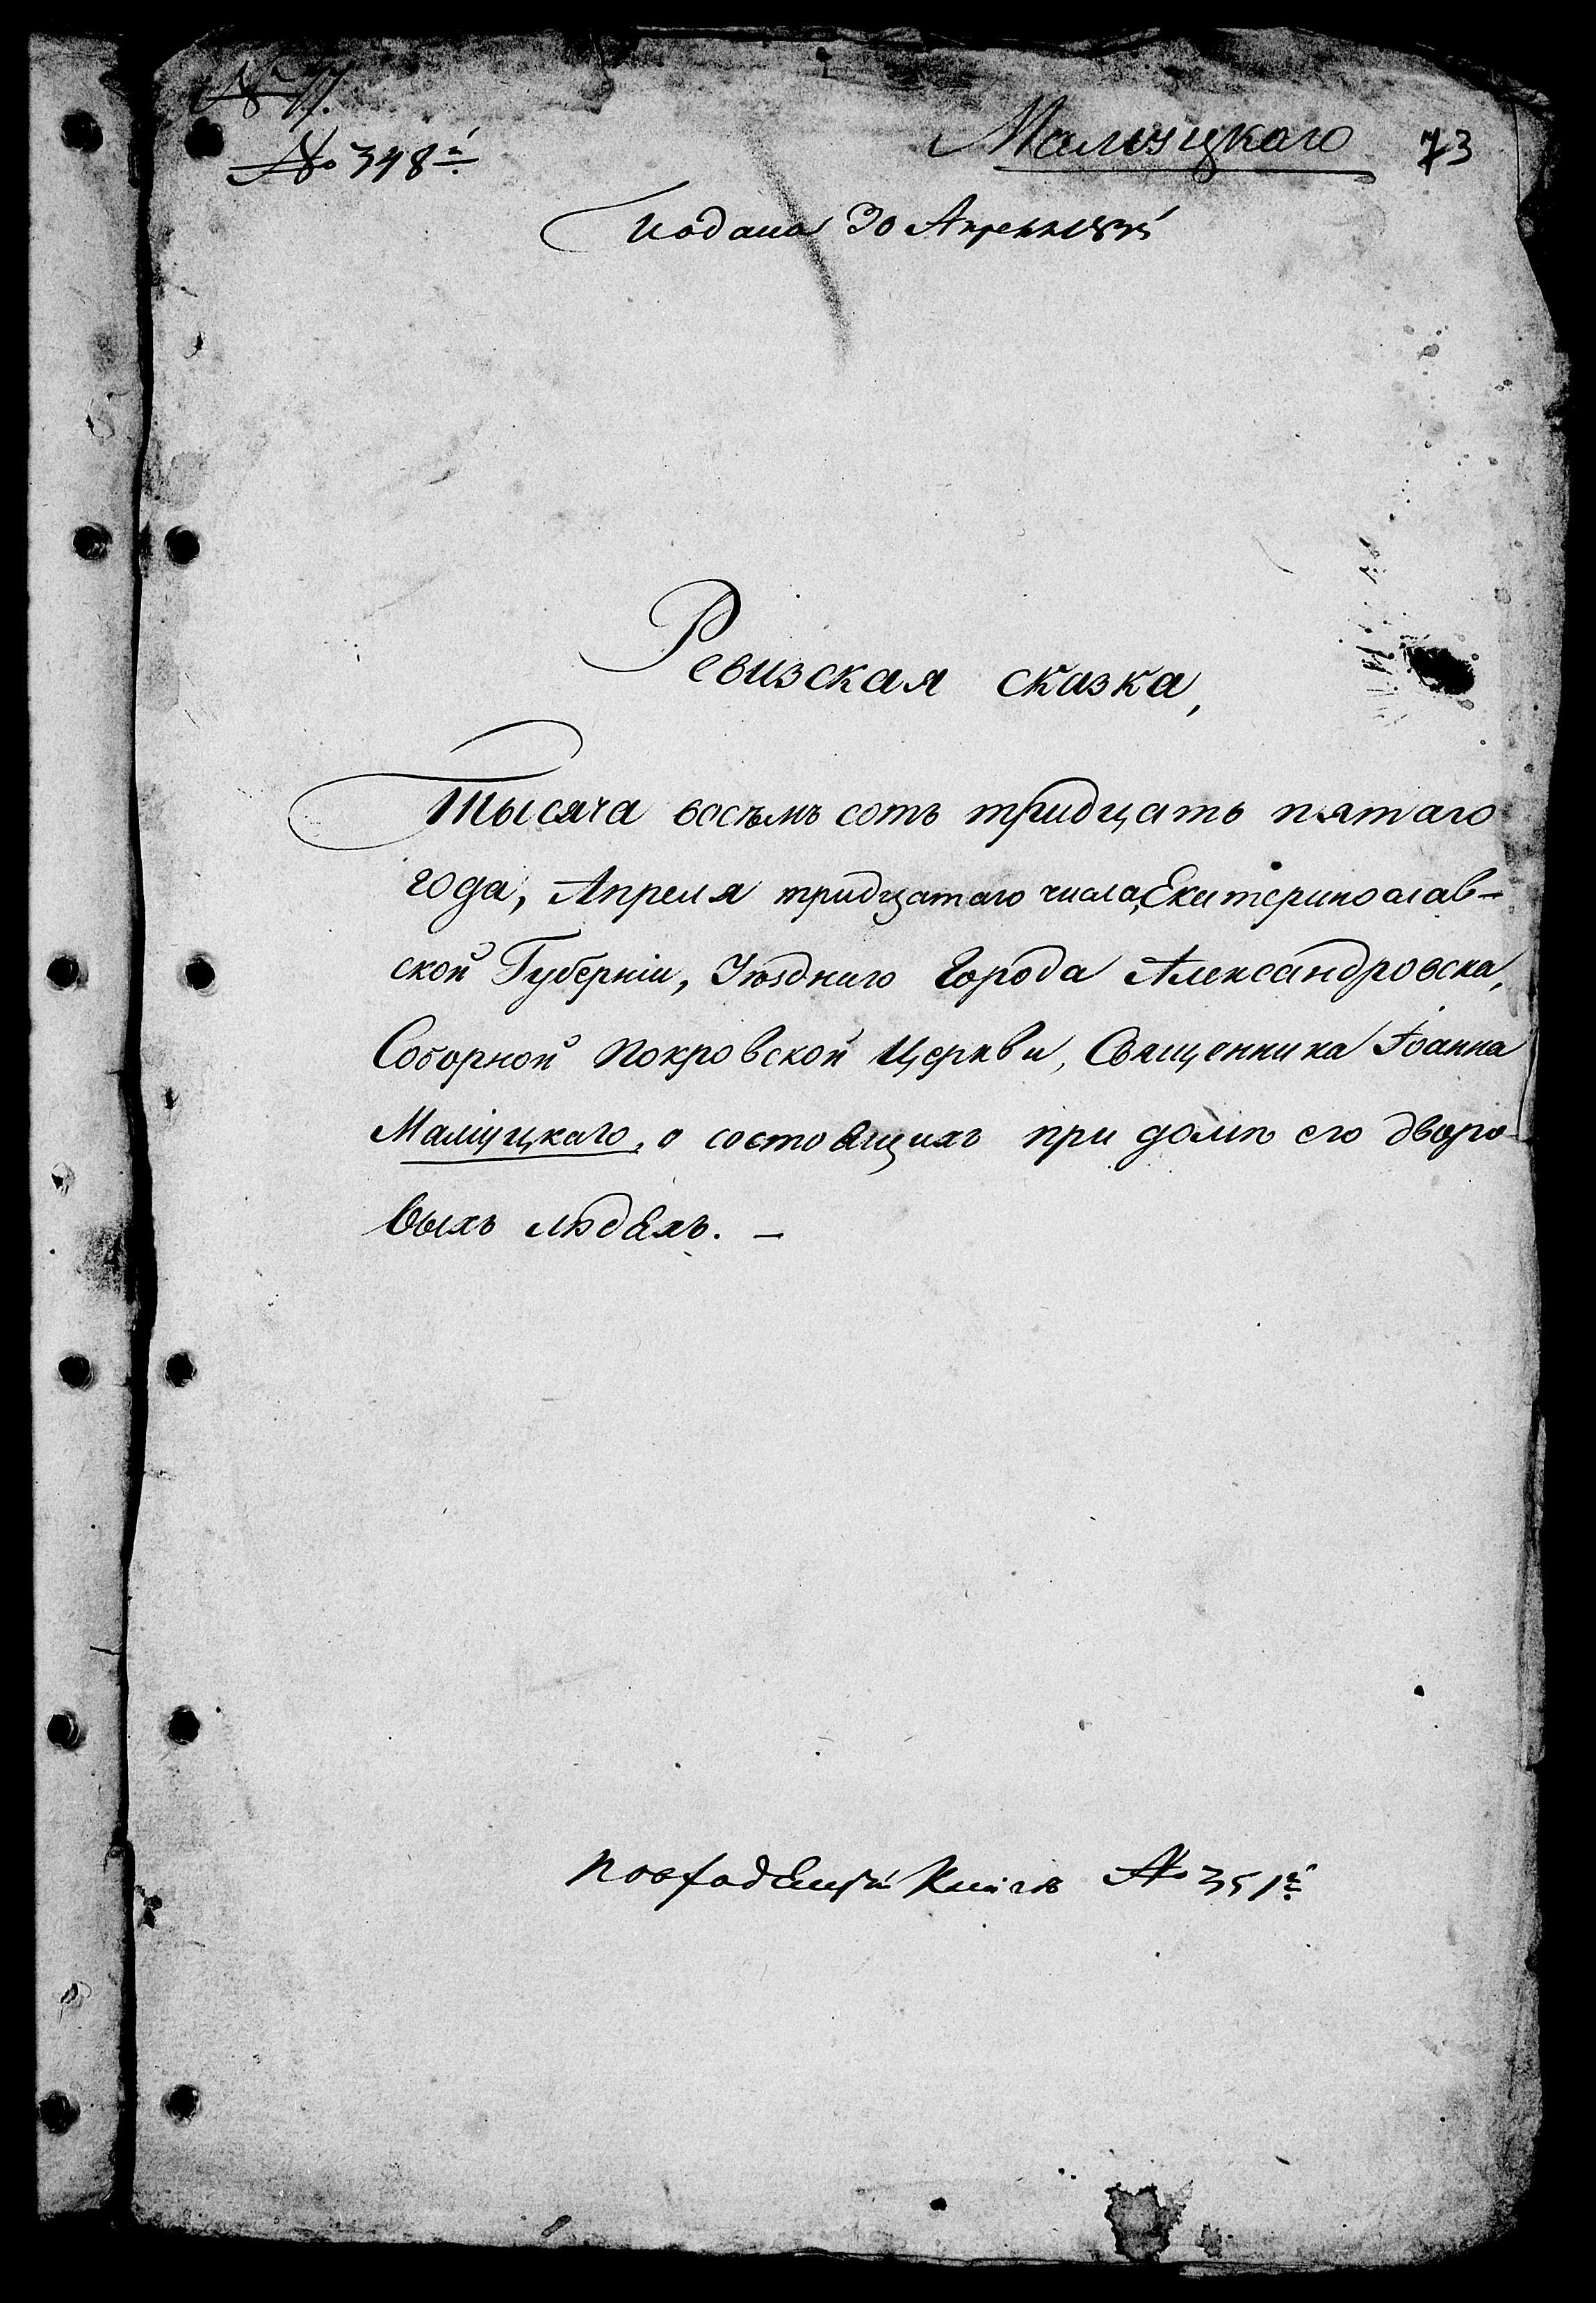 № 77.
№ 348й
73
Подана 30 Апреля 1835
Ревизская сказка,
Тысяча восъмъ сотъ тридцать пятаго
года, Апреля тридцатаго числа, Екатеринослав-
ской Губерніи, Уѣзднаго Города Александровска,
Соборной Покровской Церкви, Священника Іоанна
о состоящихъ при домѣ его дворо-
выхъ людяхъ. —
По входящей Книгѣ № 351й